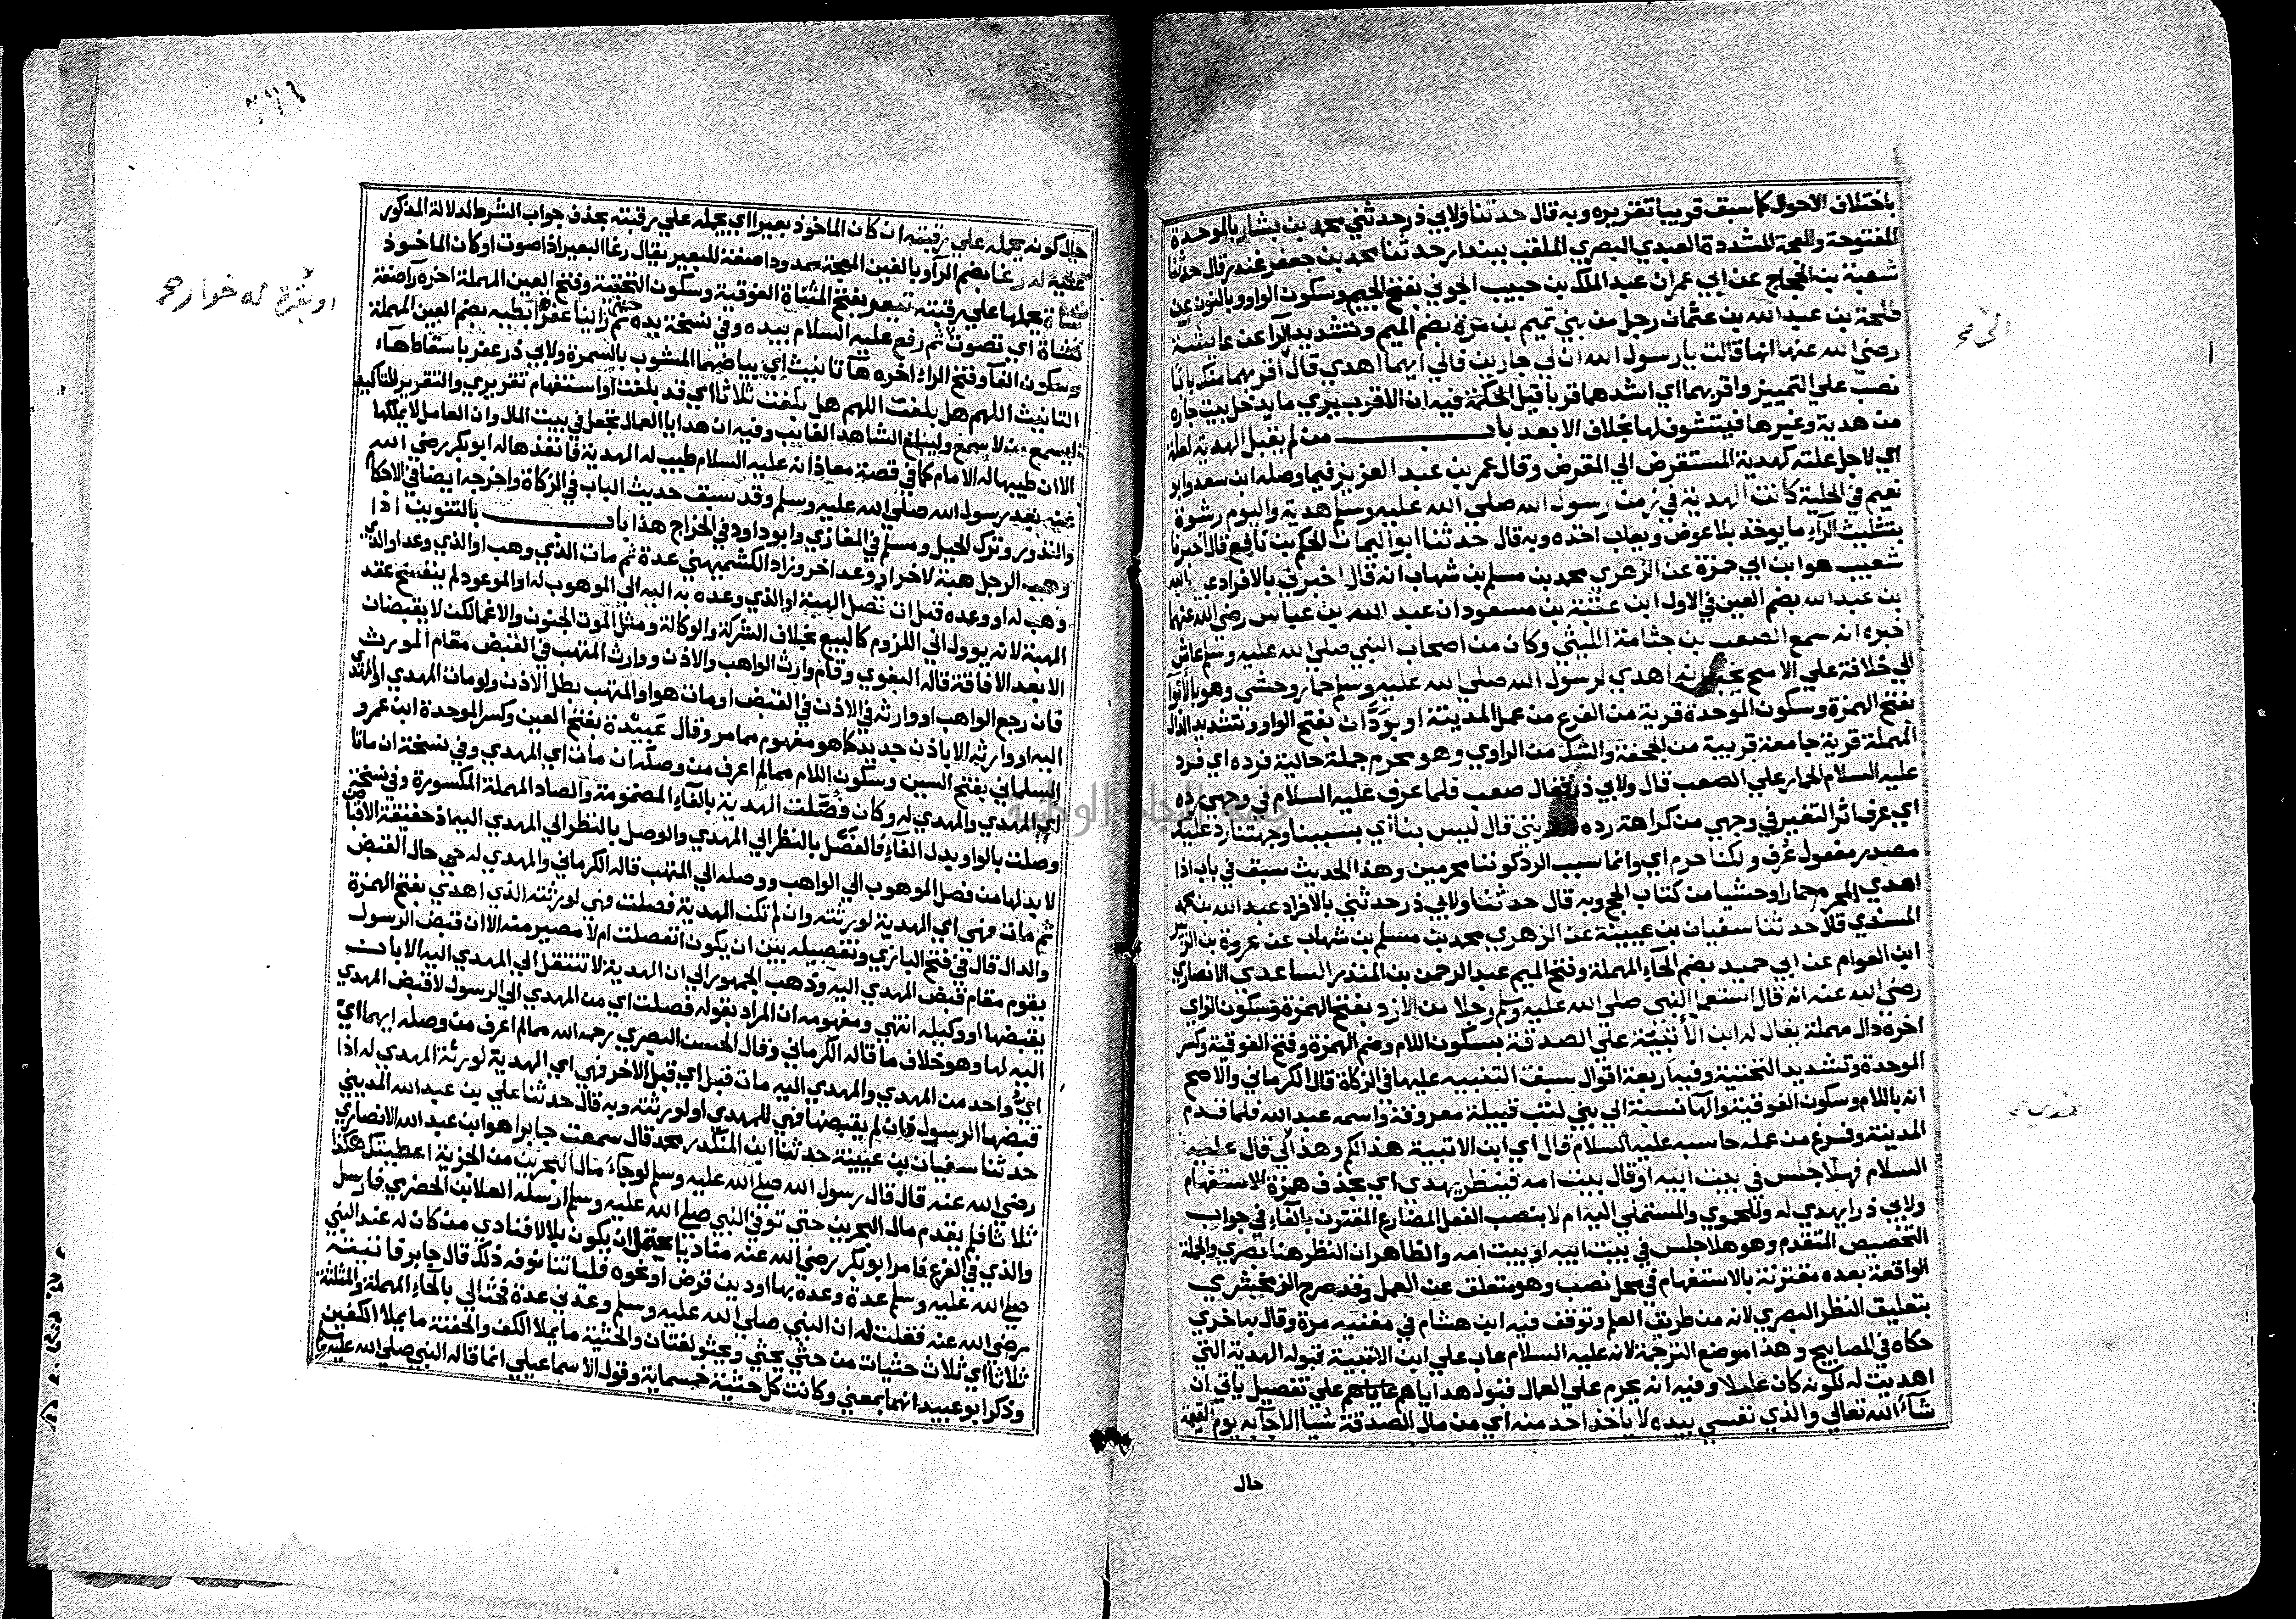 باختلاف الاحوال كما سبق قريبا تقريره وبه قال حدثنا ولابي ذر حدثني محمد بن بشار بالموحدة
المفتوحة والمعجمة المشددة العبدي البصري الملقب ببندار حدثنا محمد بن جعفر غندر قال حدثنا
شعبة بن الحجاج عن ابي عمران عبد الملك بن حبيب الجوني بفتح الجيم وسكون الواو وبالنون عن
طلحة بن عبد الله بن عثمان رجل من بني تميم بن مرة بضم الميم وتشديد الرا عن عايشة
رضي الله عنها انها قالت يا رسول الله ان لي جارين فالي ايهما اهدي قال الي اقربهما منك بابا
نصب علي التمييز واقربهما اي اشدهما قربا قيل الحكمة فيه ان الاقرب يري ما يدخل بيت جاره
من هدية وغيرها فيتشوف لها بخلاف الابعد باب من لم يقبل الهدية لعلة
اي لاجل علته كهدية المستقرض الي المقرض وقال عمر بن عبد العزيز فيما وصله ابن سعد وابو
نعيم في الحلية كانت الهدية في زمن رسول الله صلي الله عليه وسلم هدية واليوم رشوة
بتثليث الراء ما يوخذ بلا عوض ويعاب اخذه وبه قال حدثنا ابو اليمان الحكم بن نافع قال اخبرنا
شعيب هو ابن ابي حمزة عن الزهري محمد بن مسلم بن شهاب انه قال اخبرني بالافراد عبيد الله
ابن عبد الله بضم العين في الاول ابن عتبة بن مسعود ان عبد الله بن عباس رضي الله عنهما
اخبره انه سمع الصعب بن جثامة الليثي وكان من اصحاب النبي صلي الله عليه وسلم عاش
الي خلافة علي الاصح يخبر انه اهدي لرسول الله صلي الله عليه وسلم حمار وحشي وهو بالابوا
بفتح الهمزة وسكون الموحدة قرية من الفرع من عمل المدينة او بودان بفتح الواو وتشديد الدال
المهملة قرية جامعة قريبة من الجحفة والشك من الراوي وهو محرم جملة حالية فرده اي فرد
عليه السلام الحمار علي الصعب قال ولابي ذر فقال صعب فلما عرف عليه السلام في وجهي رده
اي عرف اثر التغير في وجهي من كراهة رده هديتي قال ليس بنا اي بسببنا وجهتنا رد عليك
مصدر مفعول عرف ولكنا حرم اي وانما سبب الرد كوننا محرمين وهذا الحديث سبق في باب اذا
اهدي المحرم حمارا وحشيا من كتاب الحج وبه قال حدثنا ولابي ذر حدثني بالافراد عبد الله بن محمد
المسندي قال حدثنا سفيان بن عيينة عن الزهري محمد بن مسلم بن شهاب عن عروة بن الزبير
ابن العوام عن ابي حميد بضم الحاء المهملة وفتح الميم عبد الرحمن بن المنذر الساعدي الانصاري
رضي الله عنه انه قال استعمل النبي صلي الله عليه وسلم رجلا من الازد بفتح الهمزة وسكون الزاي
اخره دال مهملة يقال له ابن الاتبية علي الصدقة بسكون اللام وضم الهمزة وفتح الفوقية وكسر
الموحدة وتشديد التحتية وفيه اربعة اقوال سبق التنبيه عليها في الزكاة قال الكرماني والاصح
انه باللام وسكون الفوقية وانها نسبة الي بني لتب قبيلة معروفة واسمه عبد الله فلما قدم
المدينة وفرغ من عمله حاسبه عليه السلام قال اي ابن الاتبية هذا لكم وهذا لي قال عليه
السلام فهلا جلس في بيت ابيه او قال بيت امه فينظر يهدي اي بحذف همزة الاستفهام
ولابي ذر ايهدي له وللحموي والمستملي اليه ام لا بنصب الفعل المضارع المقترن بالفاء في جواب
التخصيص المتقدم وهو هلا جلس في بيت ابيه او بيت امه والظاهر ان النظر هنا بصري والجملة
الواقعة بعده مقترنة بالاستفهام في محل نصب وهو متعلق عنه العمل وقد صرح الزمخشري
بتعليق النظر البصري لانه من طريق العلم وتوقف فيه ابن هشام في مغنيه مرة وقال به اخري
حكاه في المصابيح وهذا موضع الترجمة لانه عليه السلام عاب علي ابن الاتبية قبوله الهدية التي
اهديت له لكونه كان عاملا وفيه انه يحرم علي العمال قبول هدايا رعاياهم علي تفصيل ياتي ان
شاء الله تعالي والذي نفسي بيده لا ياخذ احد منه اي من مال الصدقة شيا الا جاء به يوم القيمة
حال
حال كونه يحمله علي رقبته ان كان الماخوذ بعيرا اي يحمله علي رقبته بحذف جواب الشرط لدلالة المذكور
عليه له رغا بضم الراء وبالغين المعجمة ممدودا صفة للبعير يقال رغا البعير اذا صوت او كان الماخوذ
شاة يحملها علي رقبته تيعر بفتح المثناة الفوقية وسكون التحتية وفتح العين المهملة اخره راء صفة
لشاة اي تصوت ثم رفع عليه السلام بيده وفي نسخة يده حتي راينا عفرة ابطيه بضم العين المهملة
وسكون الفاء وفتح الراء اخره هاء تانيث اي بياضهما المشوب بالسمرة ولابي ذر عفر باسقاط هاء
التانيث اللهم هل بلغت اللهم هل بلغت ثلاثا اي قد بلغت او استفهام تقريري والتقرير للتاكيد
ليسمع من لا سمع وليبلغ الشاهد الغايب وفيه ان هدايا العمال تجعل في بيت المال وان العامل لا يملكها
الا ان طيبها له الامام كما في قصة معاذ انه عليه السلام طيب له الهدية فانفذها له ابو بكر رضي الله
عنه بعد رسول الله صلي الله عليه وسلم وقد سبق حديث الباب في الزكاة واخرجه ايضا في الاحكام
والنذور وترك الحيل ومسلم في المغازي وابو داود في الخراج هذا باب بالتنوين اذا
وهب الرجل هبة لاخر او وعد اخر وزاد الكشميهني عدة ثم مات الذي وهب او الذي وعد او الذي
وهب له او وعده قبل ان تصل الهبة او الذي وعده به اليه الي الموهوب له او الموعود لم ينفسخ عقد
الهبة لانه يوول الي اللزوم كالبيع بخلاف الشركة والوكالة ومثل الموت الجنون والاغما لكن لا يقبضان
الا بعد الافاقة قاله البغوي وقام وارث الواهب والاذن ووارث المتهب في القبض مقام المورث
فان رجع الواهب او وارثه في الاذن في القبض او مات هو او المتهب بطل الاذن ولو مات المهدي او المهدي
اليه او وارثه الا باذن جديد كما هو مفهوم مما مر وقال عبيدة بفتح العين وكسر الموحدة ابن عمرو
السلماني بفتح السين وسكون اللام مما لم اعرف من وصله ان مات اي المهدي وفي نسخة ان ماتا
اي المهدي والمهدي له وكان فصلت الهدية بالفاء المضمومة والصاد المهملة المكسورة وفي نسخة
وصلت بالواو بدل الفاء فالفصل بالنظر الي المهدي والوصل بالنظر الي المهدي اليه اذ حقيقة الاقباض
لا بد لها من فصل الموهوب الي الواهب ووصله الي المتهب قاله الكرماني والمهدي له حي حال القبض
ثم مات فهي اي الهدية لورثته وان لم تكن الهدية فصلت فهي لورثة الذي اهدي بفتح الهمزة
والدال قال في فتح الباري وتفصيله بين ان يكون انفصلت ام لا مصير منه الا ان قبض الرسول
يقوم مقام قبض المهدي اليه وذهب الجمهور الي ان الهدية لا تنتقل الي المهدي اليه الا بان
يقبضها او وكيله انتهي ومفهومه ان المراد بقوله فصلت اي من المهدي الي الرسول لا قبض المهدي
اليه لها وهو خلاف ما قاله الكرماني وقال الحسن البصري رحمه الله مما لم اعرف من وصله ايهما اي
اي واحد من المهدي والمهدي اليه مات قبل اي قبل الاخر فهي اي الهدية لورثة المهدي له اذا
قبضها الرسول فان لم يقبضها فهي للمهدي او لورثته وبه قال حدثنا علي بن عبد الله المديني
حدثنا سفيان بن عيينة حدثنا ابن المنكدر محمد قال سمعت جابرا هو ابن عبد الله الانصاري
رضي الله عنه قال قال رسول الله صلي الله عليه وسلم لو جاء مال البحرين من الجزية اعطيتك هكذا
ثلاثا فلم يقدم مال البحرين حتي توفي النبي صلي الله عليه وسلم ارسله العلا بن الحضرمي فارسل
والذي في الفرع فامر ابو بكر رضي الله عنه مناديا يحتمل ان يكون بلالا فنادي من كان له عند النبي
صلي الله عليه وسلم عدة وعده بها او دين قرض او نحوه فلياتنا نوفه ذلك قال جابر فاتيته
رضي الله عنه فقلت له ان النبي صلي الله عليه وسلم وعدني عدة فحثا لي بالحاء المهملة والمثلثة
ثلاثا اي ثلاث حثيات من حثي يحثي ويحثو لغتان والحثية ما يملا الكف والحفنة ما يملا الكفين
وذكر ابو عبيد انهما بمعني وكانت كل حثية خمسماية وقول الاسماعيلي انما قاله النبي صلي الله عليه وسلم
او بقرة له خوار صح
الي صح